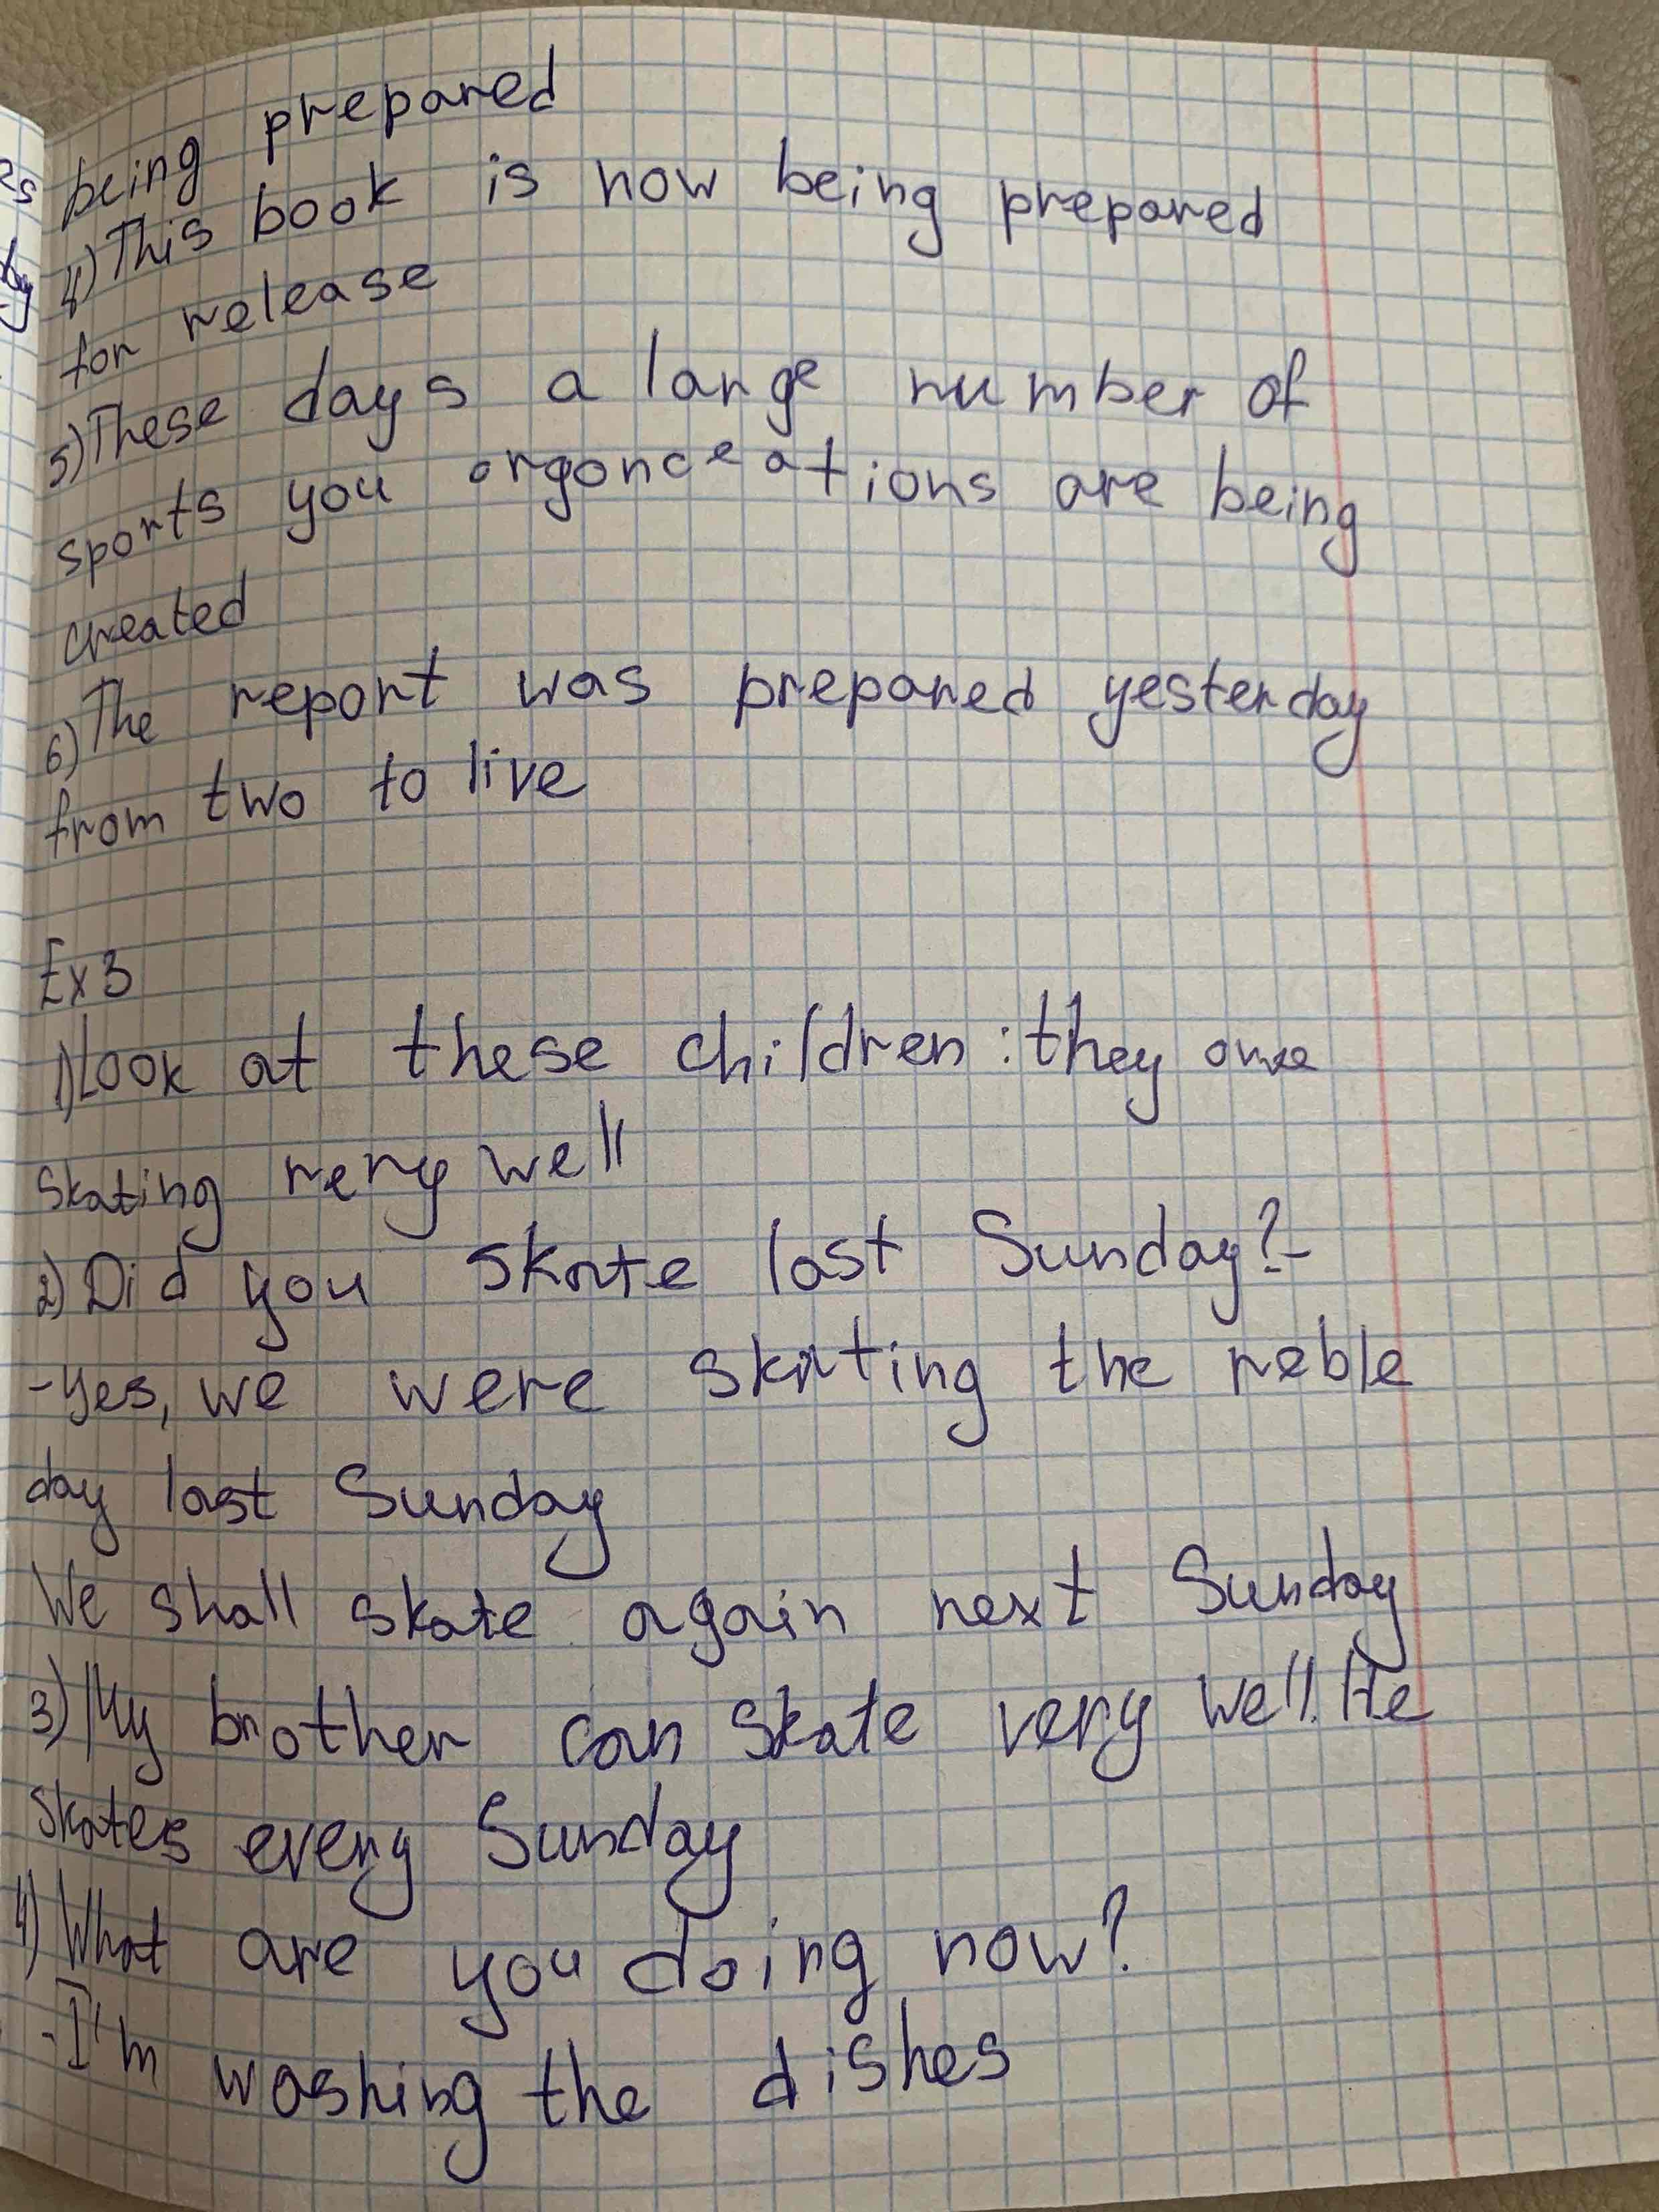 being prepared
4) This book is now being prepared
for release
5) These days a large number of
sports you orgonceations are being
created
6) The report was prepared yesterday
from two to live
Ex 3
1) Look at these children: they are
skating rery well
2) Did you skate last Sunday? -
- Yes, we were skating the reble
day last Sunday
We shall skate again next Sunday
3) My brother can skate very well. He
skates every Sunday
4) What are you doing now?
- I'm washing the dishes